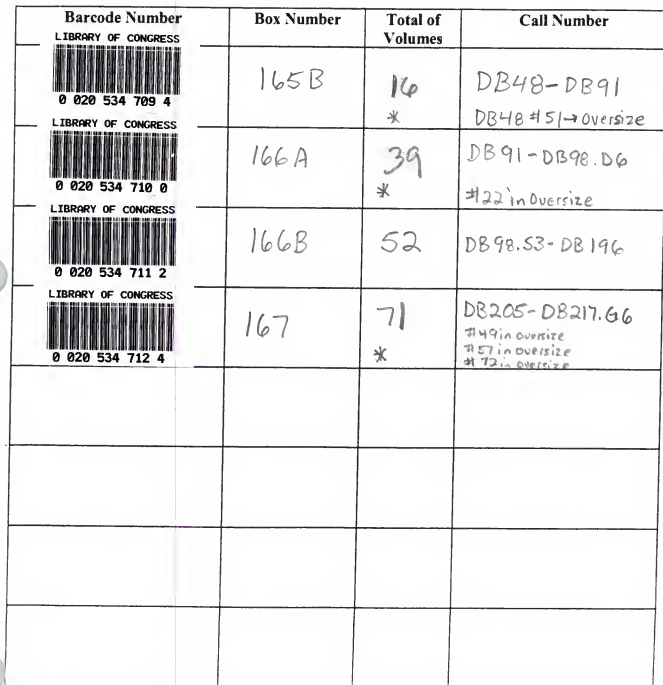 Barcode Number Box Number Total of Volumes Call Number
LIBRARY OF CONGRESS
0 020 534 709 4
165B
16
*
DB48-DB91
DB48 #51→oversize
LIBRARY OF CONGRESS
0 020 534 710 0
166A
39
*
DB91-DB98.D6
#22 in Oversize
LIBRARY OF CONGRESS
0 020 534 711 2
166B
52
DB98.S3-DB196
LIBRARY OF CONGRESS
0 020 534 712 4
167
71
*
DB205-DB217.G6
#49 in oversize
#57 in oversize
#72 in oversize